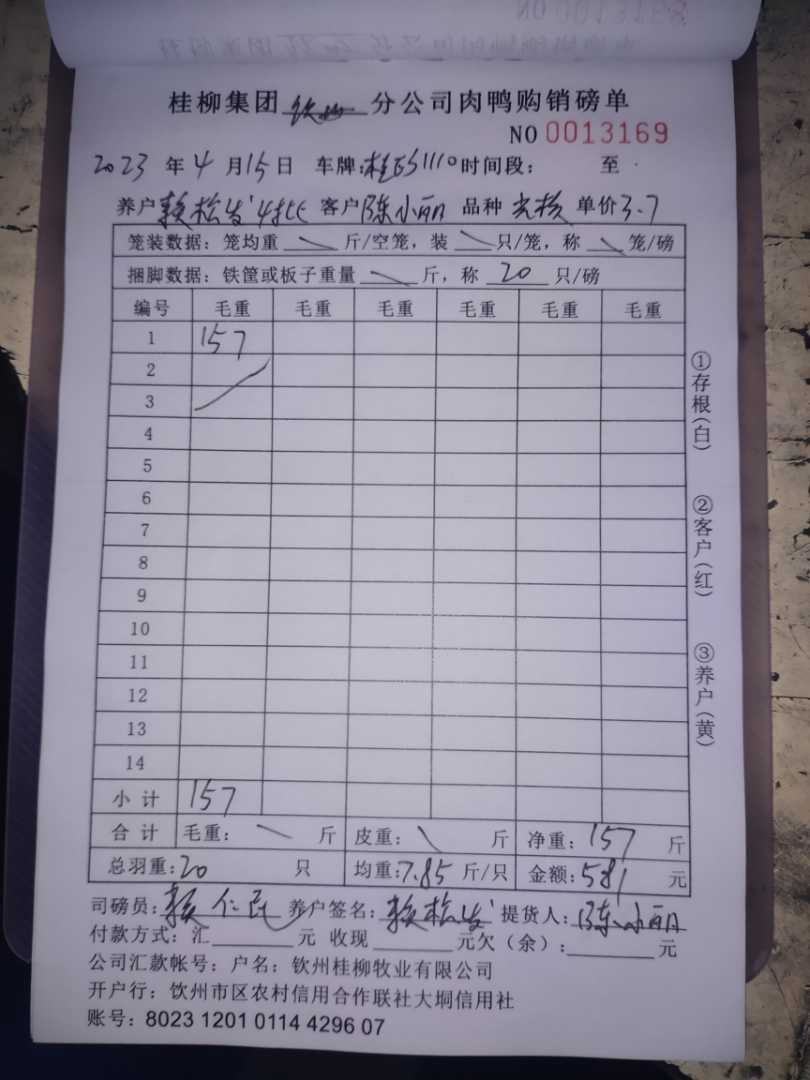 桂柳集团 钦州 分公司肉鸭购销磅单
NO 0013169
2023 年 4 月 15 日 车牌: 1110 时间段: 至
养户 赖松发 4批 客户 陈小丽 品种 单价 3.7
笼装数据: 笼均重 \ 斤/空笼, 装 \ 只/笼, 称 \ 笼/磅
捆脚数据: 铁筐或板子重量 \ 斤, 称 20 只/磅
编号 毛重 毛重 毛重 毛重 毛重 毛重
1 157
2
3
4
5
6
7
8
9
10
11
12
13
14
小计 157
合计 毛重: \ 斤 皮重: \ 斤 净重: 157 斤
总羽重: 20 只 均重: 7.85 斤/只 金额: 581 元
司磅员: 赖仁 养户签名: 赖松发 提货人: 陈小丽
付款方式: 汇 元 收现 元欠(余): 元
公司汇款帐号: 户名: 钦州桂柳牧业有限公司
开户行: 钦州市区农村信用合作联社大垌信用社
账号: 8023 1201 0114 4296 07
①存根(白)
②客户(红)
③养户(黄)